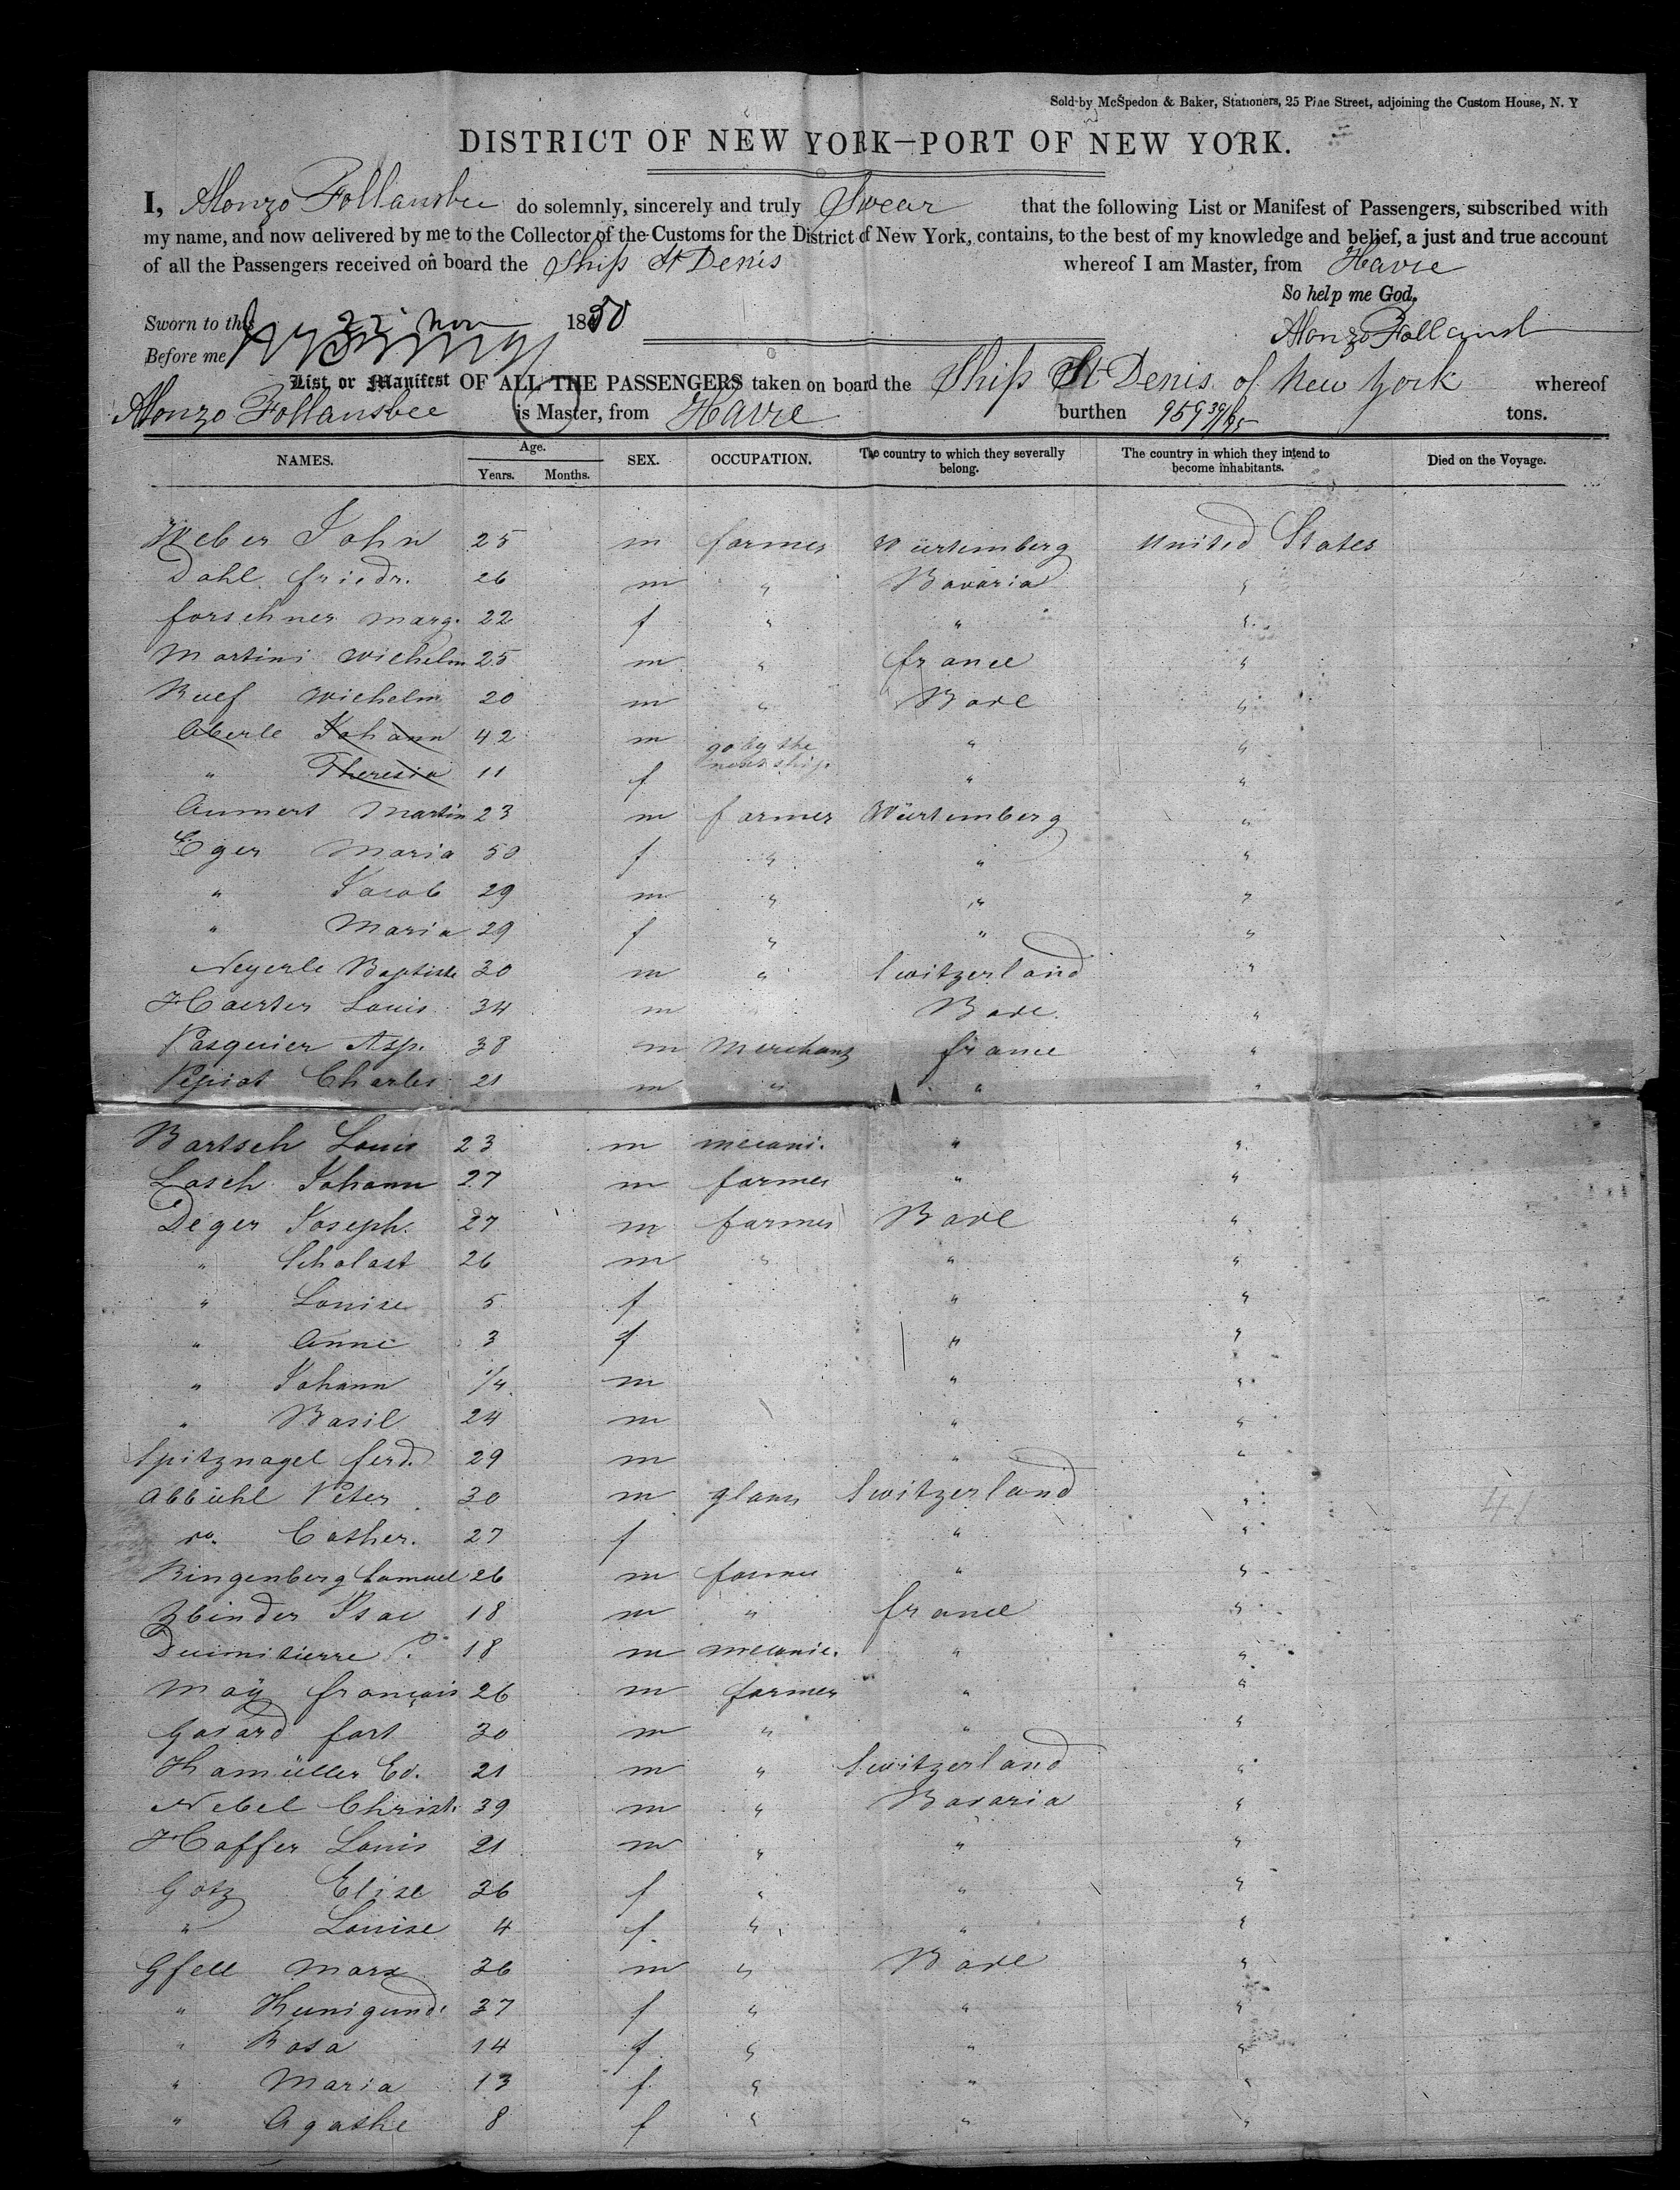 Sold by McSpedon & Baker, Stationers, 25 Pine Street, adjoining the Custom House, N. Y
DISTRICT OF NEW YORK—PORT OF NEW YORK.
I, Alonzo Follansbee do solemnly, sincerely and truly Swear that the following List or Manifest of Passengers, subscribed with
my name, and now delivered by me to the Collector of the Customs for the District of New York, contains, to the best of my knowledge and belief, a just and true account
of all the Passengers received on board the Ship St Denis whereof I am Master, from Havre
So help me God.
Sworn to this 22 Nov 1850 Alonzo Follansb
Before me
List or Manifest OF ALL THE PASSENGERS taken on board the Ship St Denis of New York whereof
Alonzo Follansbee is Master, from Havre burthen 959 39/95 tons.
NAMES. Age. Years. Months. SEX. OCCUPATION. The country to which they severally belong. The country in which they intend to become inhabitants. Died on the Voyage.
Weber John 25 m farmer Würtemberg United States
Dahl friedr. 26 m " Bavaria "
forschner marg. 22 f " " "
Martini Wilhelm 25 m " france "
Ruef Wilhelm 20 m " Bade "
Aberle Johann 42 m go by the next ship. " "
" Theresia 11 f " "
Aumert Martin 23 m farmer Würtemberg "
Eger Maria 50 f " " "
" Jacob 29 m " " "
" Maria 29 f " " "
Neyerle Baptiste 30 m " Switzerland "
Haerter Louis 34 m " Bade. "
Pasquier Asp. 38 m Merchant france "
Pepiot Charles 21 m " " "
Bartsch Louis 23 m mecani. " "
Lasch Johann 27 m farmer " "
Deger Joseph. 27 m farmer Bade "
" Scholast 26 m " " "
" Louise 5 f " "
" Anne 3 f " "
" Johann 1/4 m " "
" Basil 24 m " "
Spitznagel ferd. 29 m " "
Abbühl Peter 30 m Switzerland "
do. Cather. 27 f " "
Ringenberg Samuel 26 m farmer " "
Zbinder Isac 18 m " france "
Dumitierre P. 18 m mecanic. " "
Maÿ françois 26 m farmer " "
Gavard fort 30 m " " "
Hamüller Ed. 21 m " Switzerland "
Nebel Christ. 39 m " Bavaria "
Haffer Louis 21 m " " "
Götz Elise 36 f " " "
" Louise 4 f. " " "
Gfell Marx 36 m " Bade "
" Kunigund. 37 f " " "
" Rosa 14 f " " "
" Maria 13 f. " " "
" Agathe 8 f " " "